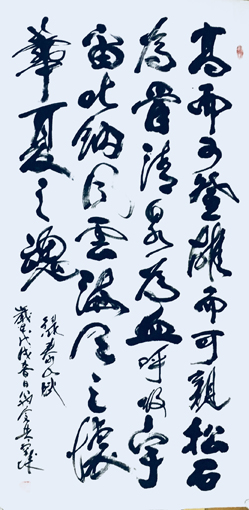 高而可登雄而可親松石
為骨清泉為血呼吸宇
宙吐納風雲海天之懷
華夏之魂
錄泰山賦
歲在戊戌春日